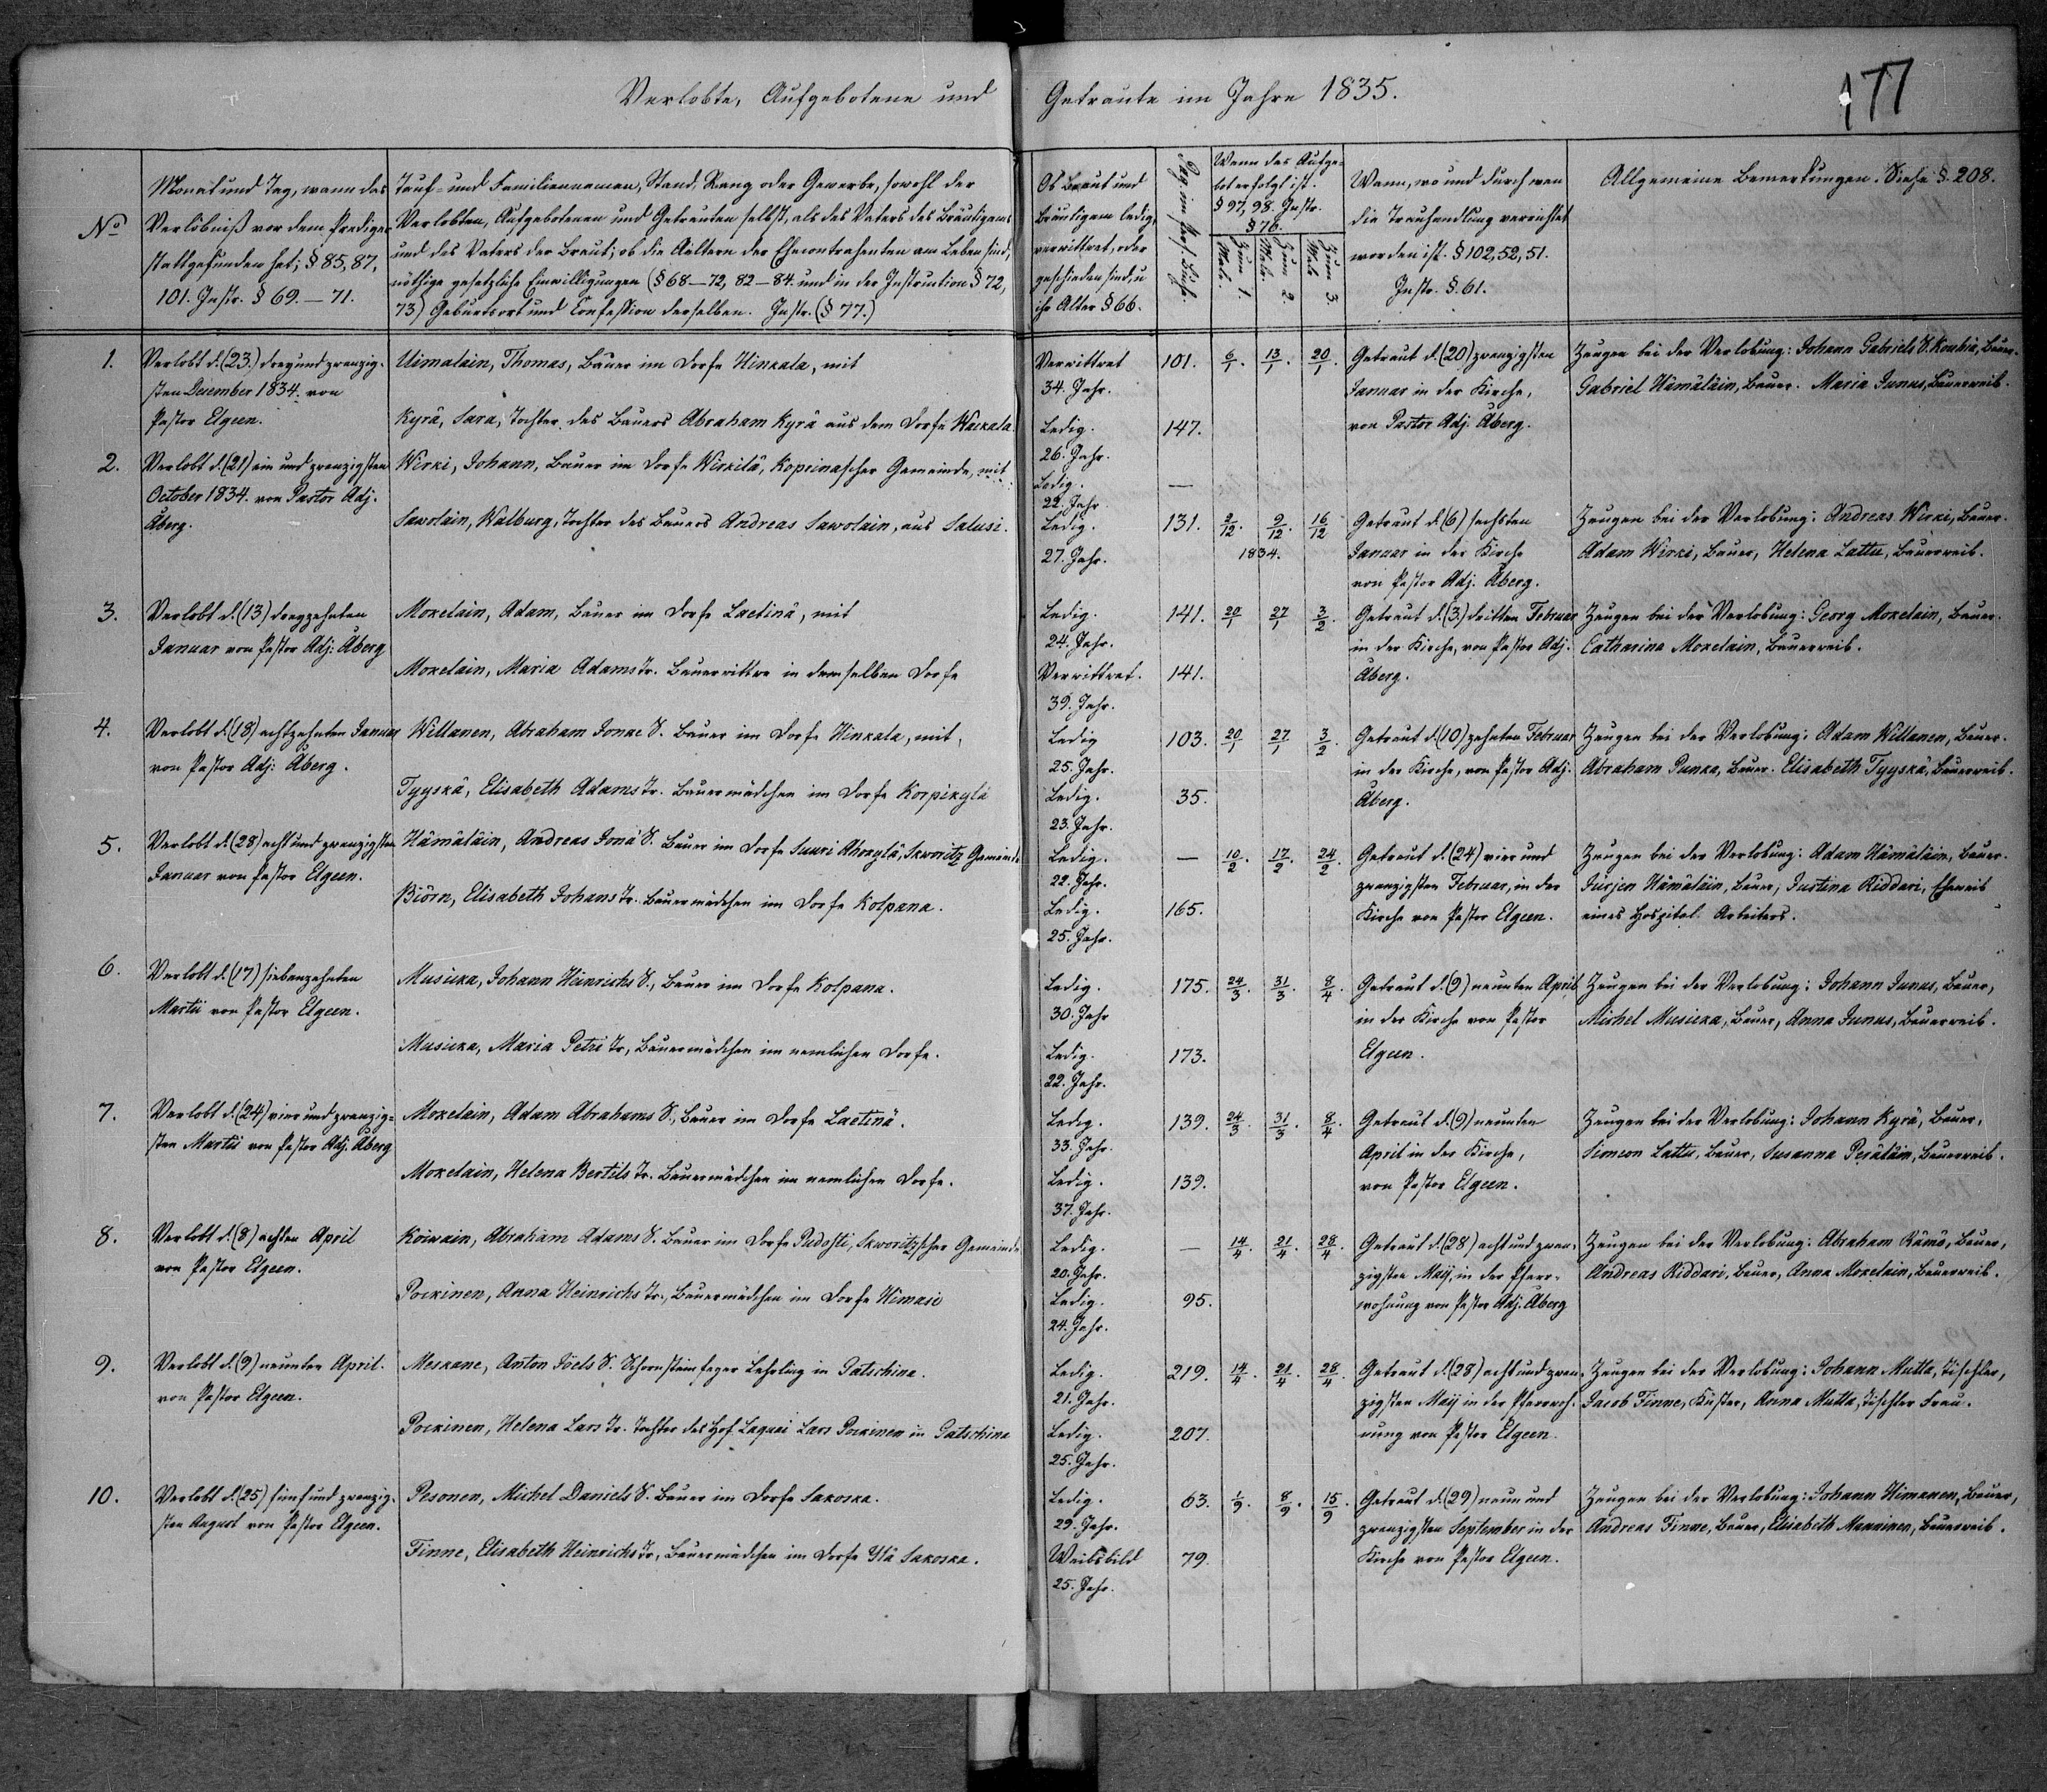 Verlobte, Aufgebotene und Getraute im Jahre 1835.
177
No
Monat und Tag, wann das
Verlöbniß vor dem Prediger
stattgefunden hat; § 85, 87,
101. Instr. § 69. — 71.
Tauf- und Familiennamen, Stand, Rang oder Gewerbe, sowohl der
Verlobten, Aufgebotenen und Getrauten selbst, als des Vaters des Bräutigams
und des Vaters der Braut; ob die Aeltern der Ehecontrahenten am Leben sind,
nöthige gesetzliche Einwilligungen (§ 68—72, 82—84. und in der Instruction § 72,
73) Geburtsort und Confession derselben. Instr. (§ 77.)
Ob Braut und
Bräutigam ledig,
verwittwet, oder
geschieden sind, u
ihr Alter § 66.
Pag. im Pers. Buche.
Wenn das Aufge-
bot erfolgt ist.
§ 97, 98. Instr.
§ 76.
Zum 1.
Male.
Zum 2.
Male.
Zum 3.
Male
Wann, wo und durch wen
die Trauhandlung verrichtet
worden ist. § 102, 52, 51.
Instr. §. 61.
Allgemeine Bemerkungen. Siehe §. 208.
1.
Verlobt d. (23.) drey und zwanzig-
sten December 1834. von
Pastor Elgeen.
Uimalain, Thomas, Bauer im Dorfe Hinkala, mit
Kyrä, Sara, Tochter des Bauers Abraham Kyrä aus dem Dorfe Wackala.
Verwittwet
34. Jahr.
Ledig.
26. Jahr.
101.
147.
6/1. 13/1. 20/1.
Getraut d. (20) zwanzigsten
Januar in der Kirche,
von Pastor Adj. Åberg.
Zeugen bei der Verlobung: Johann Gabriels S. Koukia, Bauer.
Gabriel Hämäläin, Bauer. Maria Junus, Bauerweib.
2.
Verlobt d. (21) ein und zwanzigsten
October 1834. von Pastor Adj.
Åberg.
Wirki, Johann, Bauer im Dorfe Wirkilä, Koprinascher Gemeinde, mit
Sawolain, Walburg, Tochter des Bauers Andreas Sawolain, aus Salusi.
Ledig.
22. Jahr
Ledig.
27. Jahr.
—
131.
2/12. 9/12. 16/12
1834.
Getraut d. (6) sechsten
Januar in der Kirche
von Pastor Adj. Åberg.
Zeugen bei der Verlobung: Andreas Wirki, Bauer.
Adam Wirki, Bauer, Helena Lattu, Bauerweib.
3.
Verlobt d. (13) dreyzehnten
Januar von Pastor Adj: Åberg
Mokelain, Adam, Bauer im Dorfe Laetinä, mit
Mokelain, Maria Adams Tr. Bauerwittwe in demselben Dorfe
Ledig.
24. Jahr.
Verwittwet.
39. Jahr.
141.
141.
20/1 27/1 3/2.
Getraut d. (3.) dritten Februar
in der Kirche, von Pastor Adj.
Åberg.
Zeugen bei der Verlobung: Georg Mokelain, Bauer.
Catharina Mokelain, Bauerweib.
4.
Verlobt d. (18) achtzehnten Januar
von Pastor Adj: Åberg.
Willanen, Abraham Jonae S. Bauer im Dorfe Hinkala, mit,
Tyyskä, Elisabeth Adams Tr. Bauermädchen im Dorfe Korpikylä
Ledig
25. Jahr.
Ledig.
23. Jahr.
103.
35.
20/1 27/1 3/2.
Getraut d. (10) zehnten Februar
in der Kirche, von Pastor Adj.
Åberg.
Zeugen bei der Verlobung: Adam Willanen, Bauer.
Abraham Punka, Bauer. Elisabeth Tyyskä, Bauerweib.
5.
Verlobt d. (28) acht und zwanzigsten
Januar von Pastor Elgeen.
Hämäläin, Andreas Jonä S. Bauer im Dorfe Suuri Ahokylä, Skworitz Gemeinde
Biörn, Elisabeth Johans Tr. Bauermädchen im Dorfe Kolpana.
Ledig.
22. Jahr.
Ledig.
25. Jahr.
—
165.
10/2. 17/2. 24/2
Getraut d. (24) vier und
zwanzigsten Februar, in der
Kirche von Pastor Elgeen.
Zeugen bei der Verlobung: Adam Hämäläin, Bauer.
Jürjen Hämäläin, Bauer, Justina Riddari, Eheweib
eines Hospital Arbeiters.
6.
Verlobt d. (17) siebenzehnten
Martii von Pastor Elgeen.
Musicka, Johann Heinrichs S., Bauer im Dorfe Kolpana.
Musicka, Maria Petri Tr, Bauermädchen im nemlichen Dorfe.
Ledig.
30. Jahr
Ledig.
22. Jahr.
175.
173.
24/3. 31/3. 8/4
Getraut d. (9) neunten April
in der Kirche von Pastor
Elgeen.
Zeugen bei der Verlobung: Johann Junus, Bauer,
Michel Musicka, Bauer, Anna Junus, Bauerweib.
7.
Verlobt d. (24) vier und zwanzig-
sten Martii von Pastor Adj. Åberg
Mokelain, Adam Abrahams S., Bauer im Dorfe Laetinä.
Mokelain, Helena Bertils Tr. Bauermädchen im nemlichen Dorfe.
Ledig.
33. Jahr.
Ledig.
37. Jahr.
139.
139.
24/3. 31/3. 8/4
Getraut d. (9) neunten
April in der Kirche,
von Pastor Elgeen.
Zeugen bei der Verlobung: Johann Kyrä, Bauer,
Simeon Lattu, Bauer, Susanna Peräläin, Bauerweib.
8.
Verlobt d. (8) achten April
von Pastor Elgeen.
Koiwain, Abraham Adams S. Bauer im Dorfe Pudosti, Skworitzscher Gemeinde
Pockinen, Anna Heinrichs Tr., Bauermädchen im Dorfe Himasi
Ledig.
20. Jahr.
Ledig.
24. Jahr.
—
95.
14/4. 21/4. 28/4.
Getraut d. (28) acht und zwan-
zigsten Maij, in der Pfarr-
wohnung von Pastor Adj. Åberg
Zeugen bei der Verlobung: Abraham Rämö, Bauer,
Andreas Riddari, Bauer, Anna Mokelain, Bauerweib.
9.
Verlobt d. (9) neunten April.
von Pastor Elgeen.
Meskane, Anton Jöels S. Schornsteinfeger Lehrling in Gatschina.
Pockinen, Helena Lars Tr. Tochter des Hof Laquai Lars Pockinen in Gatschina
Ledig.
21. Jahr.
Ledig.
25. Jahr.
219.
207.
14/4. 21/4. 28/4.
Getraut d. (28) acht und zwan-
zigsten Maij in der Pfarrwoh-
nung von Pastor Elgeen.
Zeugen bei der Verlobung: Johann Mutta, Tischler,
Jacob Finne, Küster, Anna Mutta, Tischler Frau.
10.
Verlobt d. (25) fünf und zwanzig-
sten August von Pastor Elgeen.
Pesonen, Michel Daniels S. Bauer im Dorfe Sakoska.
Finne, Elisabeth Heinrichs Tr, Bauermädchen im Dorfe Ylä Sakoska.
Ledig.
29. Jahr.
Weibsbild
25. Jahr.
63.
79.
1/9. 8/9. 15/9.
Getraut d. (29) neun und
zwanzigsten September in der
Kirche von Pastor Elgeen.
Zeugen bei der Verlobung: Johann Himanen, Bauer,
Andreas Finne, Bauer, Elisabeth Manninen, Bauerweib.